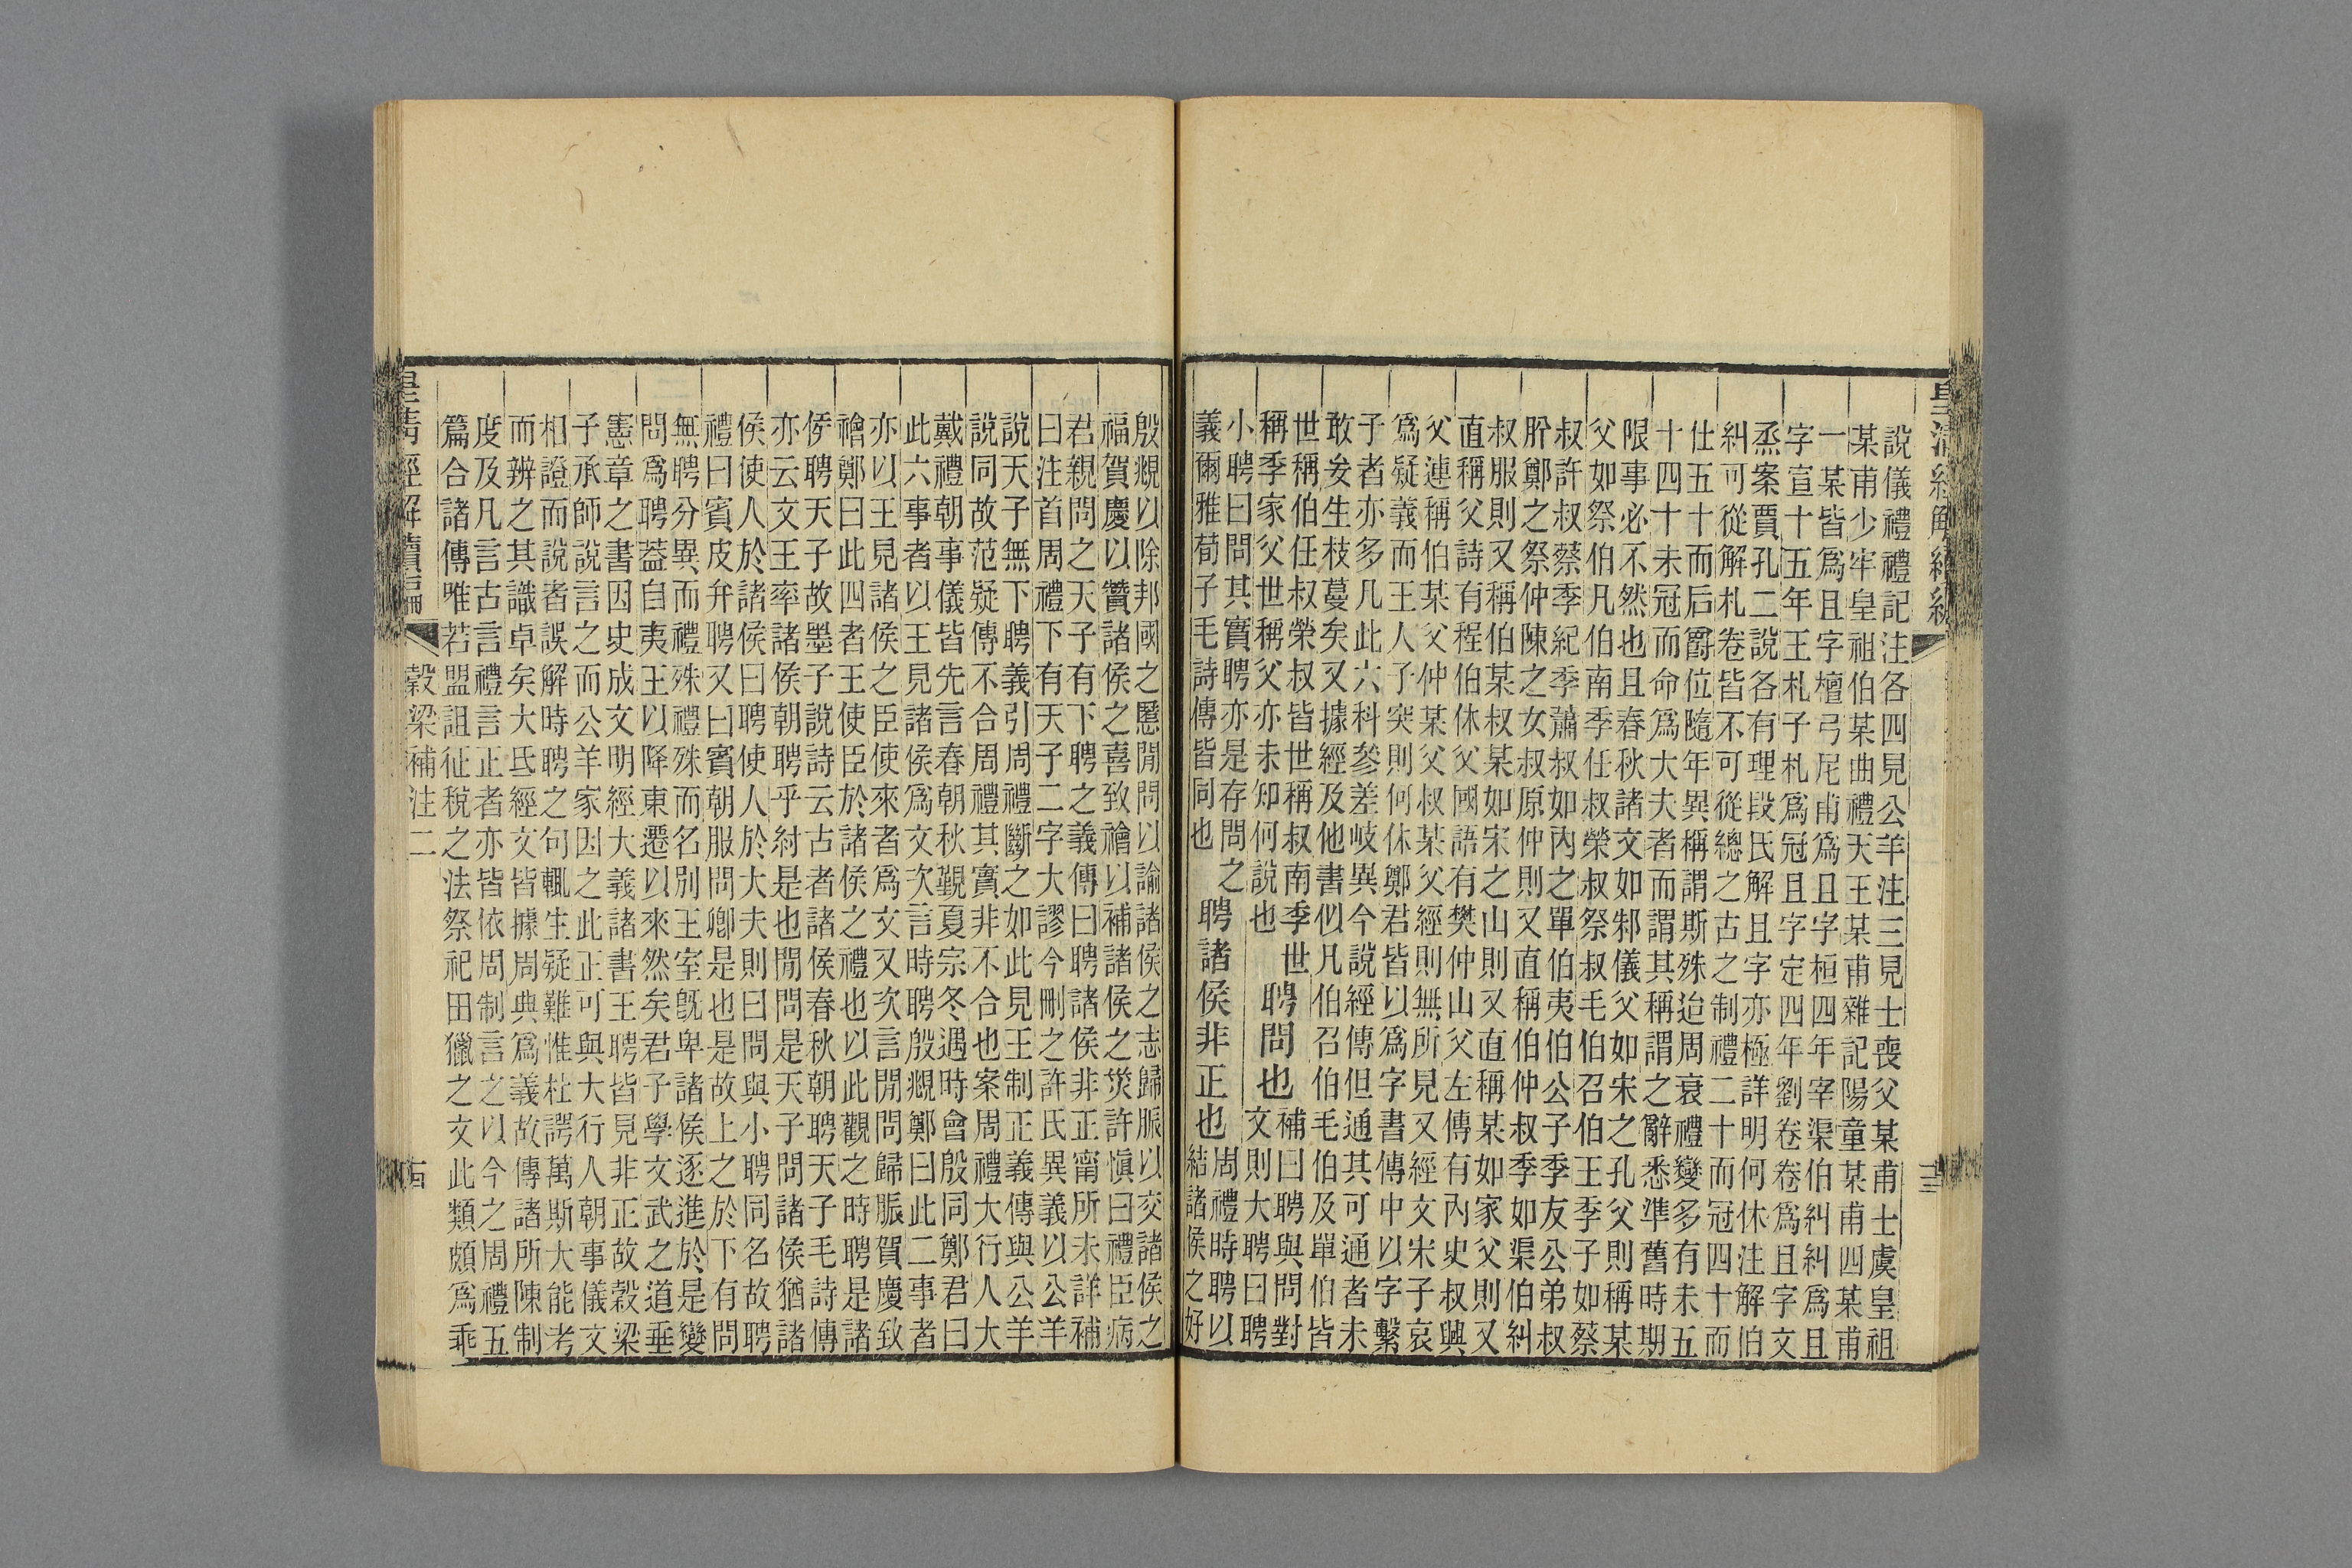 說儀禮禮記注各四見公羊注三見士喪父某甫士虞皇祖
某甫少牢皇祖伯某曲禮天王某甫雜記陽童某甫四某甫
一某皆爲且字檀弓尼甫爲且字桓四年宰渠伯糾糾爲且
字宣十五年王札子札爲冠且字定四年劉卷卷爲且字文
烝案賈孔二說各有理段氏解且字亦極詳明何休注解伯
糾可從解札卷皆不可從總之古之制禮二十而冠四十而
仕五十而后爵位隨年異稱謂斯殊迨周衰禮變多有未五
十四十未冠而命爲大夫者而謂其稱謂之辭悉準舊時期
限事必不然也且春秋諸文如邾儀父如宋之孔父則稱某
父如祭伯凡伯南季任叔榮叔祭叔毛伯召伯王季子如蔡
叔許叔蔡季紀季蕭叔如內之單伯夷伯公子季友公弟叔
肸鄭之祭仲陳之女叔原仲則又直稱伯仲叔季如渠伯糾
叔服則又稱伯某叔某如宋之山則又直稱某如家父則又
直稱父詩有程伯休父國語有樊仲山父左傳有內史叔興
父連稱伯某父仲某父叔某父經則無所見又經文宋子哀
爲疑義而王人子突則何休鄭君皆以爲字書傳中以字繫
子者亦多凡此六科參差岐異今說經傳但通其可通者未
敢妄生枝蔓矣又據經及他書似凡伯召伯毛伯及單伯皆
世稱伯任叔榮叔皆世稱叔南季世
稱季家父世稱父亦未知何說也
聘問也
補曰聘與問對
文則大聘曰聘
小聘曰問其實聘亦是存問之
義爾雅荀子毛詩傳皆同也
聘諸侯非正也
周禮時聘以
結諸侯之好
殷覜以除邦國之慝閒問以諭諸侯之志歸脤以交諸侯之
福賀慶以贊諸侯之喜致禬以補諸侯之災許愼曰禮臣病
君親問之天子有下聘之義傳曰聘諸侯非正甯所未詳補
曰注首周禮下有天子二字大謬今刪之許氏異義以公羊
說天子無下聘義引周禮斷之如此見王制正義傳與公羊
說同故范疑傳不合周禮其實非不合也案周禮大行人大
戴禮朝事儀皆先言春朝秋覲夏宗冬遇時會殷同鄭君曰
此六事者以王見諸侯爲文次言時聘殷覜鄭曰此二事者
亦以王見諸侯之臣使來者爲文又次言閒問歸脤賀慶致
禬鄭曰此四者王使臣於諸侯之禮也以此觀之時聘是諸
侯聘天子故墨子說詩云古者諸侯春秋朝聘天子毛詩傳
亦云文王率諸侯朝聘乎紂是也閒問是天子問諸侯猶諸
侯使人於諸侯曰聘使人於大夫則曰問與小聘同名故聘
禮曰賓皮弁聘又曰賓朝服問卿是也是故上之於下有問
無聘分異而禮殊禮殊而名別王室旣卑諸侯逐進於是變
問爲聘葢自夷王以降東遷以來然矣君子學文武之道垂
憲章之書因史成文明經大義諸書王聘皆見非正故穀梁
子承師說言之而公羊家因之此正可與大行人朝事儀文
相證而說者誤解時聘之句輒生疑難惟杜諤萬斯大能考
而辨之其識卓矣大氐經文皆據周典爲義故傳諸所陳制
度及凡言古言禮言正者亦皆依周制言之以今之周禮五
篇合諸傳唯若盟詛征稅之法祭祀田獵之文此類頗爲乖
皇淸經解續編
穀梁補注二